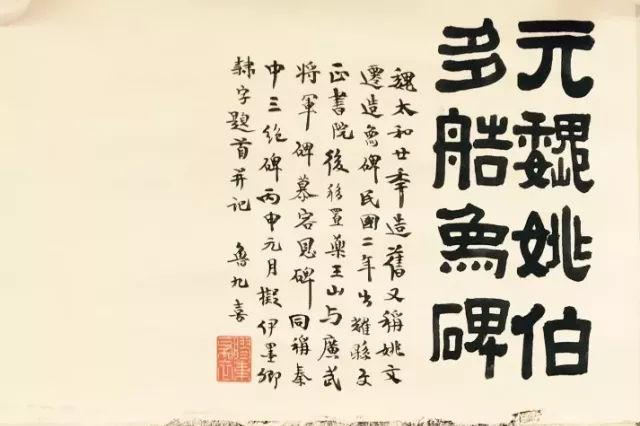 元魏姚伯
多艁象碑
魏太和廿年造舊又稱姚文
遷造象碑民國二年出耀縣文
正書院後移置藥王山與廣武
將軍碑慕容恩碑同稱秦
中三絕碑丙申元月擬伊墨卿
隸字題首并記 魯九喜